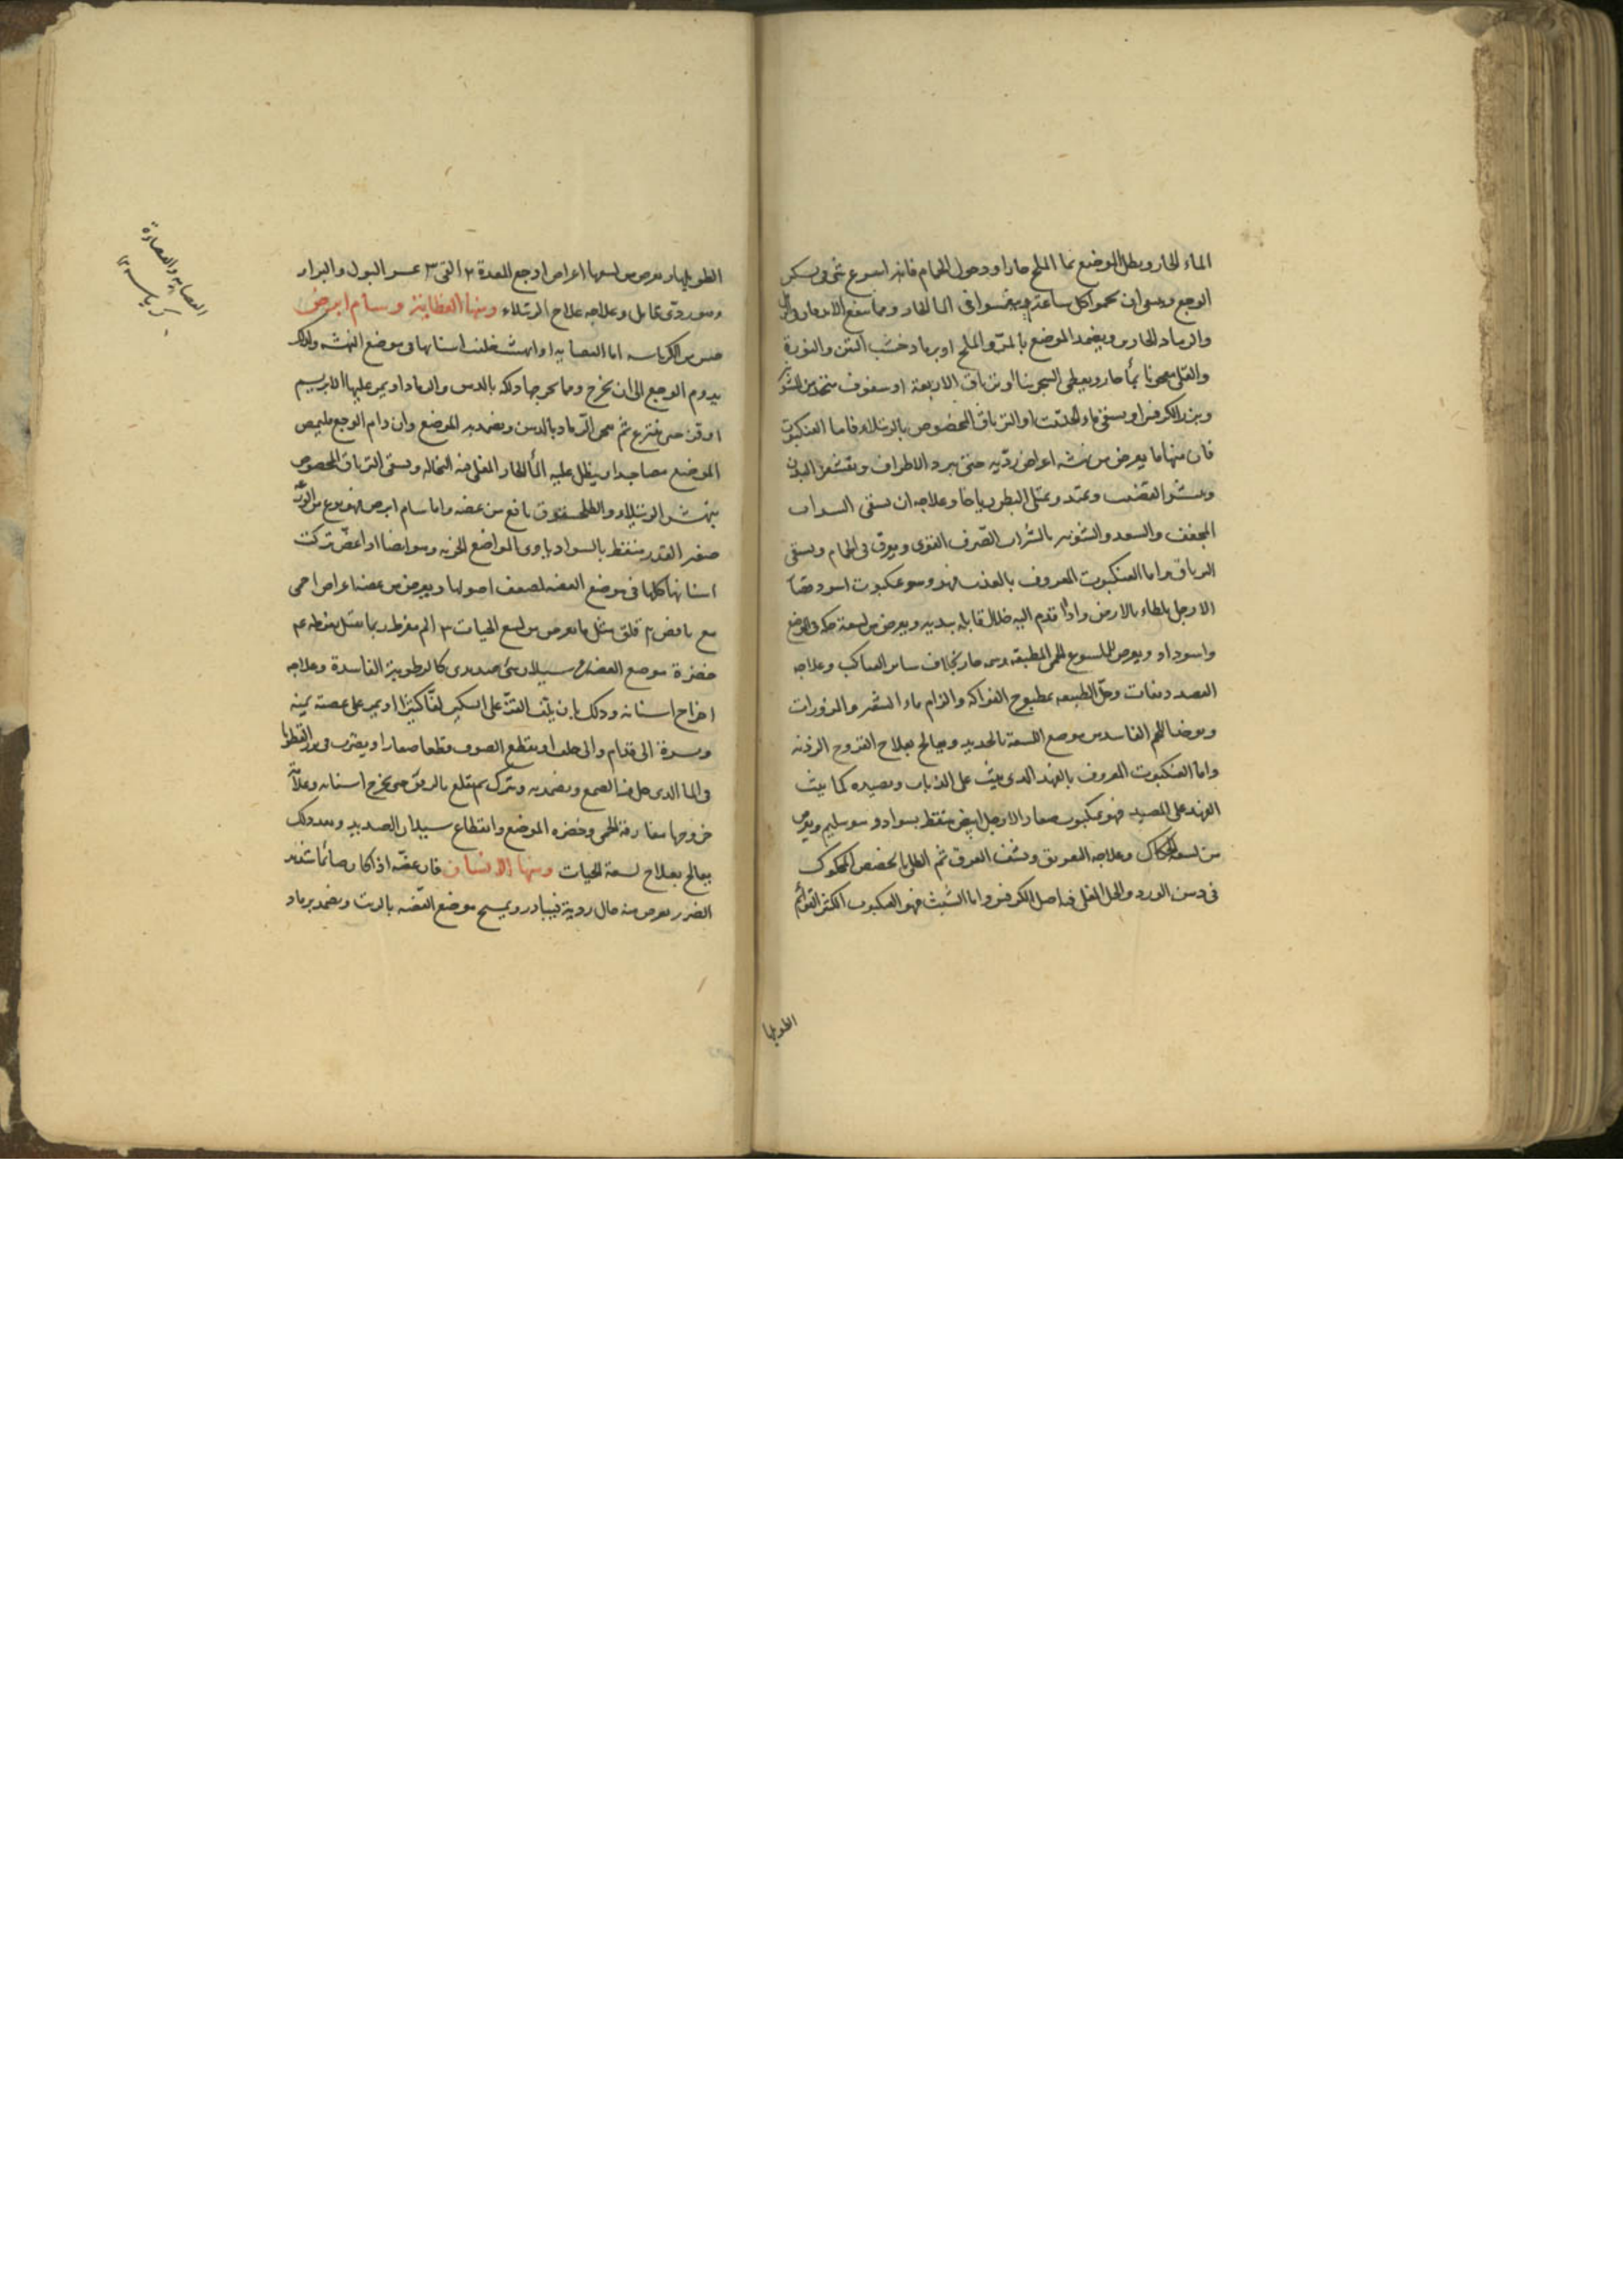 الماء الحار وبطل الموضع بما الملح حارا ودخول الحمام فانه اسرع شى فى تسكين
الوجع وينبغى ان يحموا كل ساعة ويغمسوا فى الما الحار ومما ينفع الاندفان فى الرمل
والرماد الحارين ويضمد الموضع بالمرّ والملح او برماد خشب التين والنورة
والقلى معجونا بمأ حار ويعطى السجرينا او ترياق الاربعة او سفوف متخذ من الشونيز
وبزر الكرفس او يسقى ماء الحلتيت او الترياق المخصوص بالرتيلاء فاما العنكبوت
فان منها ما يعرض من نهشه اعراض رديه حتى يبرد الاطراف ويقشعر البدن
وينتشر القضيب ويمتد ويمتلى البطن رياحا وعلاجه ان يسقى السداب
المجفف والسعد والشونيز بالشراب الصّرف القوى ويعرق فى الحمام ويسقى
الترياق واما العنكبوت المعروف بالفهد فهو وهو عنكبوت اسود قصار
الارجل بلطاء بالارض واذا قدم اليه خلال قابله بيديه ويعرض من لسعة حكه فى الموضع
واسوداد ويعرض للملسوع الحمى المطبقه وسمه حار بخلاف ساير العناكب وعلاجه
الفصد دفعات وحلّ الطبيعه بمطبوخ الفواكه والزام ماء الشعير والمزورات
ويؤخذ اللحم الفاسد من موضع اللسعة بالحديد ويعالج بعلاج القروح الرديه
واما العنكبوت المعروف بالفهد الذى يثب على الذباب ويصيده كما يثب
الفهد على الصيد فهو عنكبوت صغار الارجل ابيض منقط بسواد وهو سليم ويعرض
من لسعه الحكاك وعلاجه التعريق ونشف العرق ثم الطلى بالحضض المحكوك
فى دهن الورد والخل المغلى فيه اصل الكرفس واما الشبث فهو العنكبوت الكثير القوائم
الطويلها
الطويلها ويعرض من لسعها اعراض ا وجع المعدة ٢ القى ٣ عسر البول والبراز
وهو ردى قاتل وعلاجه علاج الرتيلاء ومنها العظاية وسام ابرص
جنس من الكرباسه اما العضايه اذا نهشت خلفت اسنانها فى موضع النهشه ولذلك
يدوم الوجع الى ان يخرج ومما يخرجها دلكه بالدهن والرماد او يمر عليها الابريسم
او قز حتى ينتزع ثم يمص الرّماد بالدهن ويضمد به الموضع وان دام الوجع فليمص
الموضع مصا جيدا وينطل عليه المأ الحار المغلى فيه النخاله ويسقى الترياق المخصوص
بنهش الرتيلاء والطلحشقوق نافع من عضه واما سام ابرص فهو نوع من الوزغ
صغير القدر منقط بالسواد ياوى المواضع الخربه وهو ايضا اذا عضّ تركت
اسنانها كلها فى موضع العضه لضعف اصولها ويعرض من عضها اعراض ا حمى
مع نافض ٢ قلق مثل ما يعرض من لسع الحيات ٣ الم مفرط ربما قتل بفرطه ٤
خضرة موضع العضه ٥ سيلان شئ صديدى كالرطوبة الفاسدة وعلاجه
اخراج اسنانه وذلك بان يلف القزّ على السكين لفّا كثيرا او يمر على عضته يمنه
ويسرة الى قدام والى خلف او يقطع الصوف قطعا صغارا ويضرب فى بزر القطونا
فى الما الذى حل فيه الصمغ ويضمد به ويترك ثم يقلع بالرفق حتى يخرج اسنانه وعلامة
خروجها مفارقة الحمى وخضرة الموضع وانقطاع سيلان الصديد وبعد ذلك
يعالج بعلاج لسعة الحيات ومنها الانسان فان عضّه اذا كان صائما شديد
الضرر يعرض منه حال ردية فيبادر ويمسح موضع العضّه بالزيت ويضمد برماد
العضايه والعصارة
كرباسه ١٢